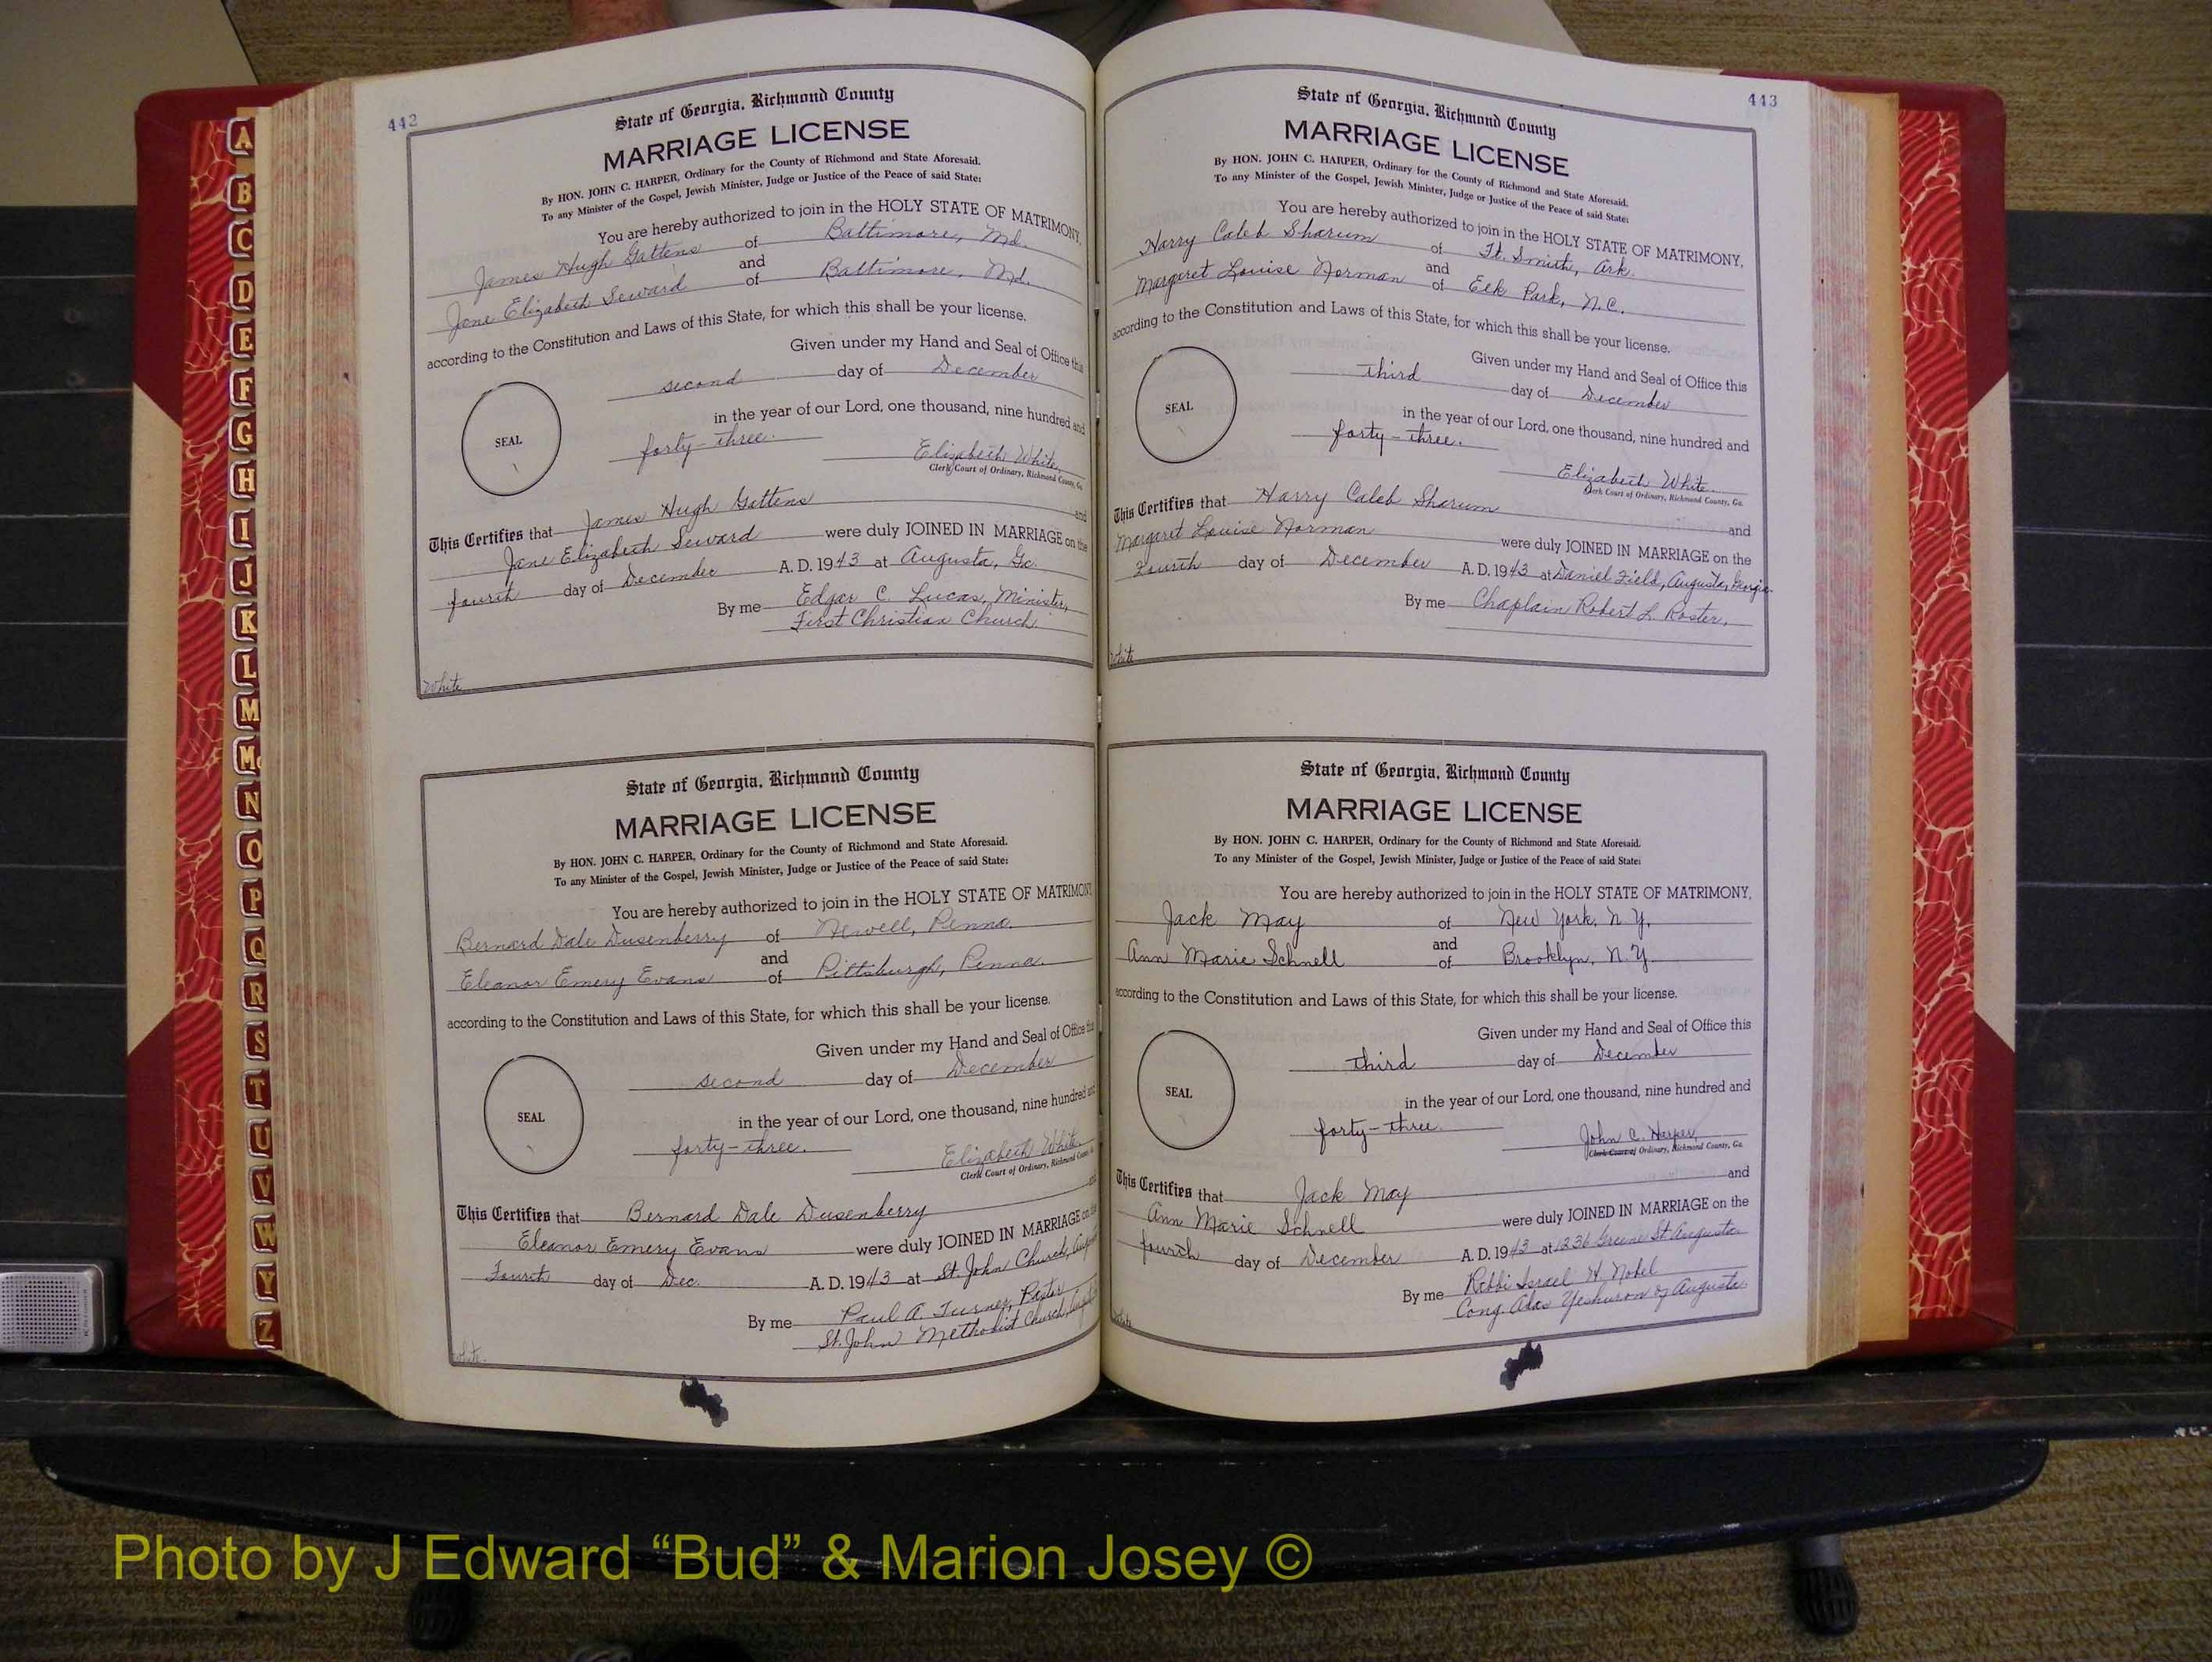 442
State of Georgia, Richmond County
MARRIAGE LICENSE
By HON. JOHN C. HARPER, Ordinary for the County of Richmond and State Aforesaid.
To any Minister of the Gospel, Jewish Minister, Judge or Justice of the Peace of said State:
You are hereby authorized to join in the HOLY STATE OF MATRIMONY,
James Hugh Gattens of Baltimore, Md.
and
Jane Elizabeth Seward of Baltimore, Md.
according to the Constitution and Laws of this State, for which this shall be your license.
Given under my Hand and Seal of Office this
second day of December
in the year of our Lord, one thousand, nine hundred and
SEAL
forty-three. Elizabeth White,
Clerk Court of Ordinary, Richmond County, Ga.
This Certifies that James Hugh Gattens and
Jane Elizabeth Seward were duly JOINED IN MARRIAGE on the
fourth day of December A. D. 1943 at Augusta, Ga.
By me Edgar C. Lucas, Minister,
First Christian Church
White
State of Georgia, Richmond County
MARRIAGE LICENSE
By HON. JOHN C. HARPER, Ordinary for the County of Richmond and State Aforesaid.
To any Minister of the Gospel, Jewish Minister, Judge or Justice of the Peace of said State:
You are hereby authorized to join in the HOLY STATE OF MATRIMONY
Bernard Dale Dusenberry of Newell, Penna.
and
Eleanor Emery Evans of Pittsburgh, Penna.
according to the Constitution and Laws of this State, for which this shall be your license.
Given under my Hand and Seal of Office this
second day of December
in the year of our Lord, one thousand, nine hundred and
SEAL
forty-three. Elizabeth White
Clerk Court of Ordinary, Richmond County
This Certifies that Bernard Dale Dusenberry and
Eleanor Emery Evans were duly JOINED IN MARRIAGE on the
Fourth day of Dec. A. D. 1943 at St. John Church,
By me Paul A. Turner, Pastor
St. John Methodist Church,
White.
443
State of Georgia, Richmond County
MARRIAGE LICENSE
By HON. JOHN C. HARPER, Ordinary for the County of Richmond and State Aforesaid.
To any Minister of the Gospel, Jewish Minister, Judge or Justice of the Peace of said State:
You are hereby authorized to join in the HOLY STATE OF MATRIMONY,
Harry Caleb Sharum of Ft. Smith, Ark.
and
Margaret Louise Norman of Elk Park, N.C.
according to the Constitution and Laws of this State, for which this shall be your license.
Given under my Hand and Seal of Office this
third day of December
in the year of our Lord, one thousand, nine hundred and
SEAL
forty-three. Elizabeth White
Clerk Court of Ordinary, Richmond County, Ga.
This Certifies that Harry Caleb Sharum and
Margaret Louise Norman were duly JOINED IN MARRIAGE on the
Fourth day of December A. D. 1943 at Daniel Field, Augusta, Georgia
By me Chaplain Robert L. Roster,
White
State of Georgia, Richmond County
MARRIAGE LICENSE
By HON. JOHN C. HARPER, Ordinary for the County of Richmond and State Aforesaid.
To any Minister of the Gospel, Jewish Minister, Judge or Justice of the Peace of said State:
You are hereby authorized to join in the HOLY STATE OF MATRIMONY,
Jack May of New York, N.Y.
and
Ann Marie Schnell of Brooklyn, N.Y.
according to the Constitution and Laws of this State, for which this shall be your license.
Given under my Hand and Seal of Office this
third day of December
in the year of our Lord, one thousand, nine hundred and
SEAL
forty-three. John C. Harper,
Clerk Court of Ordinary, Richmond County, Ga.
This Certifies that Jack May and
Ann Marie Schnell were duly JOINED IN MARRIAGE on the
fourth day of December A. D. 1943 at 1236 Greene St Augusta
By me Rabbi Israel H. Nobel
Cong. Adas Yeshuron of Augusta
White
A
B
C
D
E
F
G
H
I
J
K
L
M
Mc
N
O
P
Q
R
S
T
U
V
W
Y
Z
Photo by J Edward “Bud” & Marion Josey ©